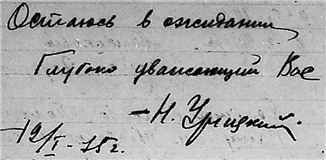 Остаюсь в ожидании
Глубоко уважающий Вас
— Н. Урицкий.
12/I - 15 г.